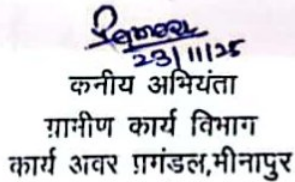 23/11/25
कनीय अभियंता
ग्रामीण कार्य विभाग
कार्य अवर प्रमंडल,मीनापुर